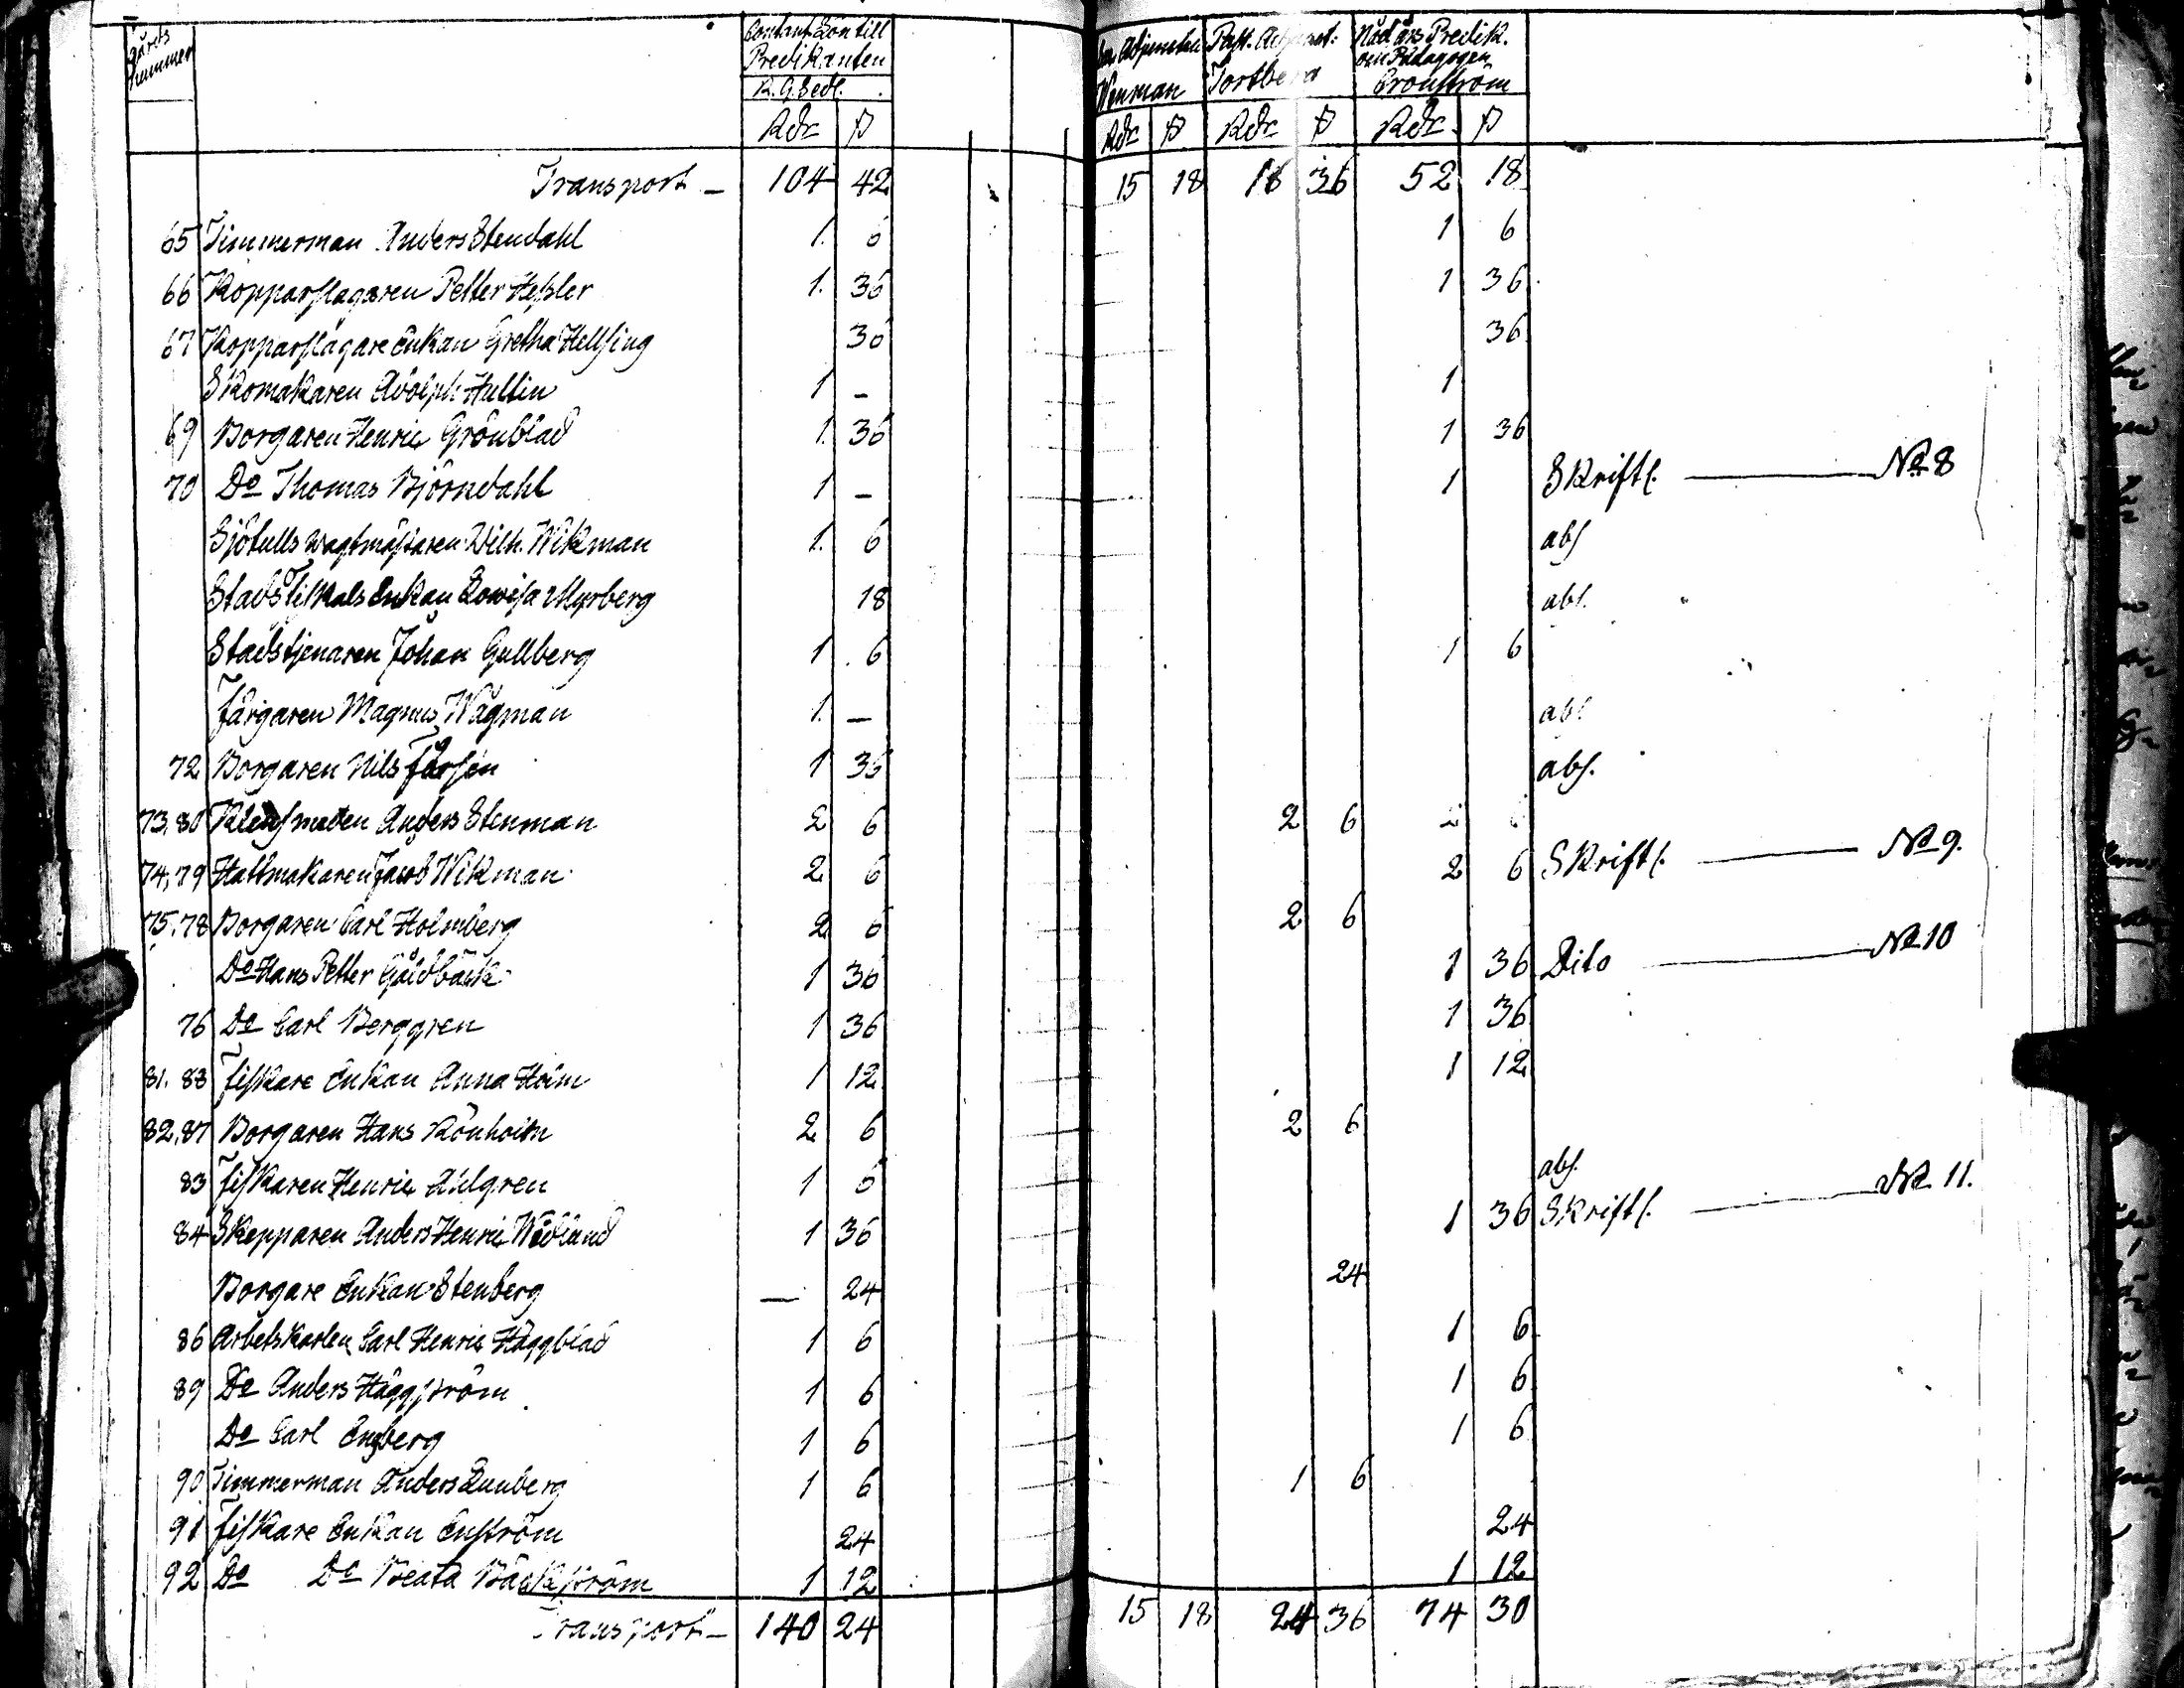 Gårds nummer | Contant Lön till Predikanten R. G. Sedl. | Adjuncten Wenman | Past. Adjunct: Torsberg | Nådårs Predik. och Pädagogen Cronström
Rdr ß | Rdr ß | Rdr ß | Rdr ß
Transport – 104 42 | 15 18 | 18 36 | 52 18
65 Timmerman Anders Stendahl 1. 6 | 1 6
66 Kopparslagaren Petter Hessler 1. 36 | 1 36
67 Kopparslagare Enkan Gretha Hellsing 36 | 36
Skomakaren Adolph Hullin 1 – | 1
69 Borgaren Henric Grönblad 1. 36 | 1 36
70 Do Thomas Björndahl 1 – | 1 | Skriftl. No 8
Sjötulls wagtmästaren Wilh. Wikman 1. 6 | abs
Stads Fiskals Enkan Lovisa Myrberg 18 | abs.
Stadstjenaren Johan Gullberg 1 6 | 1 6
Färgaren Magnus Wägman 1. – | abs
72 Borgaren Nils Forsén 1 36 | abs.
73, 80 Kleinsmeden Anders Stenman 2 6 | 2 6 | 2 6
74, 79 Hattmakaren Jacob Wikman 2 6 | 2 6 | Skriftl. No 9.
75, 78 Borgaren Carl Holmberg 2 6 | 2 6
Do Hans Petter Guldbäck 1 36 | 1 36 | Dito No 10
76 Do Carl Berggren 1 36 | 1 36
81. 88 Fiskare Enkan Anna Heim 1 12 | 1 12
82, 87 Borgaren Hans Rönholm 2 6 | 2 6
83 Fiskaren Henric Ahlgren 1 6 | abs.
84 Skepparen Anders Henric Wedlund 1 36 | 1 36 | Skriftl. No 11.
Borgare Enkan Stenberg – 24 | 24
86 Arbetskarlen Carl Henric Häggblad 1 6 | 1 6
89 Do Anders Häggström 1 6 | 1 6
Do Carl Engberg 1 6 | 1 6
90 Timmerman Anders Lunberg 1 6 | 1 6
91 Fiskare Enkan Enström 24 | 24
92 Do Do Beata Bäckström 1 12 | 1 12
Transport – 140 24 | 15 18 | 24 36 | 74 30